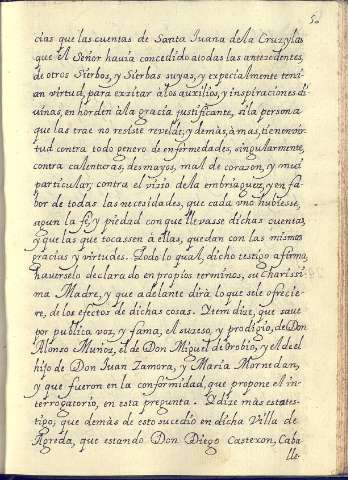 50
cias que las cuentas de Santa Juana dela Cruz, ylas
que el Señor hauia concedido atodas las antecedentes,
de otros Sierbos, y Sierbas suyas, y expecialmente tení-
an virtud, para exzitar álos auxilios, y inspiraciones di-
uinas, en horden àla gracia justificante, si la persona
que las trae no resiste revelde; y demàs, à mas, tienen vir-
tud contra todo genero de enfermedades, singularmente,
contra calenturas, desmayos, mal de corazon, y mui
particular, contra el vizio dela embriaguez, y en fa-
bor de todas las necesidades, que cada vno hubiesse,
segun la fe, y piedad con que llevasse dichas cuentas,
y que las que tocassen à ellas, quedan con las mismas
gracias y virtudes. Todo lo qual, dicho testigo afirmo,
hauerselo declarado en propios terminos, su charissi-
ma Madre, y que adelante dirà lo que sele ofrecie-
re, de los efectos de dichas cosas. Ytem dize, que saue
por publica voz, y fama, el suzeso, y prodigio, de Don
Alonso Muñoz, el de Don Miguel de Orobio, y el de el
hijo de Don Juan Zamora, y Maria Mornedan,
y que fueron en la conformidad, que propone el in-
terrogatorio, en esta pregunta. Y dize màs este tes-
tigo, que demàs de esto sucedio en dicha Villa de
Agreda, que estando Don Diego Castexon, Caba
lle-